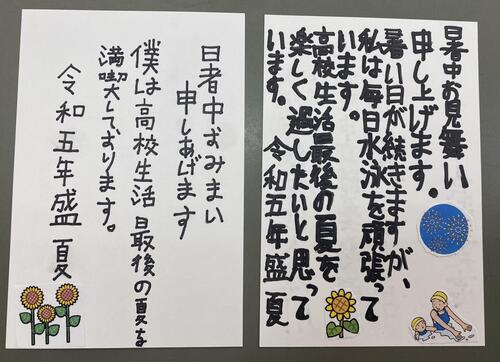 暑中お見舞い
申し上げます。
暑い日が続きますが、
私は毎日水泳を頑張って
います。
高校生活最後の夏を
楽しく過したいと思って
います。 令和五年盛夏
日者中おみまい
申しあげます
僕は高校生活最後の夏を
満喫しております。
令和五年盛夏